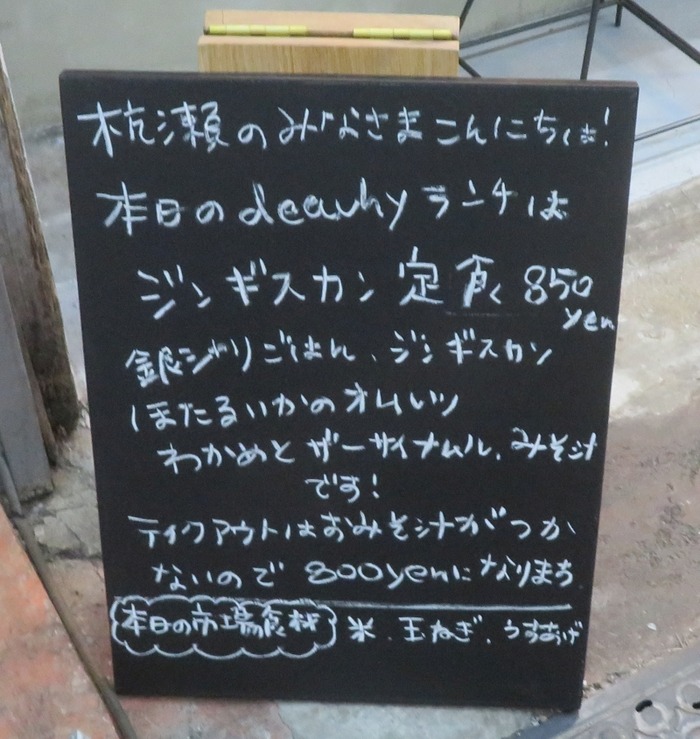 杭瀬のみなさまこんにちは!
本日のdeawhyランチは
ジンギスカン定食 850
yen
銀ジャリごはん、ジンギスカン
ほたるいかのオムレツ
わかめとザーサイナムル、みそ汁
です!
テイクアウトはおみそ汁がつか
ないので 800yenになりまち
本日の市場食材 米、玉ねぎ、うすあげ